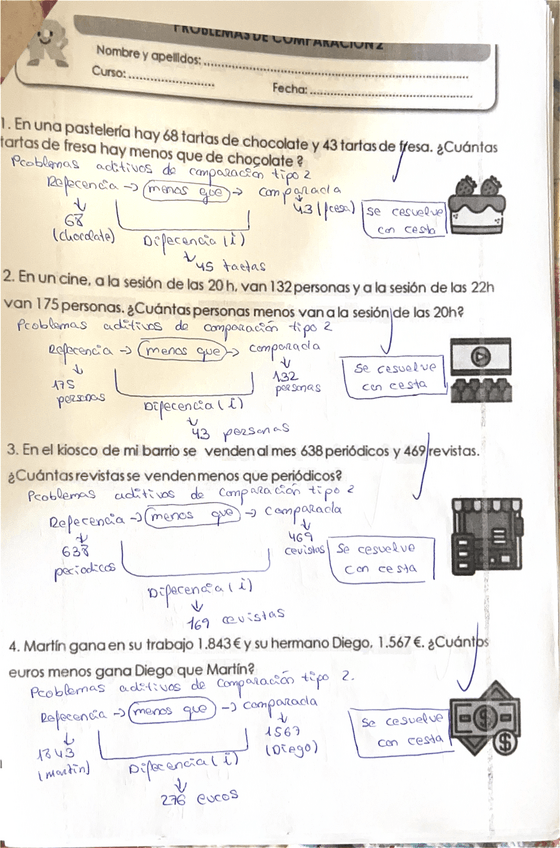 PROBLEMAS DE COMPARACIÓN 2
Nombre y apellidos:
Curso:
Fecha:
1. En una pastelería hay 68 tartas de chocolate y 43 tartas de fresa. ¿Cuántas
tartas de fresa hay menos que de chocolate?
Problemas aditivos de comparación tipo 2
Referencia → menos que → comparada
68
(chocolate)
43 (fresa)
Se resuelve
con resta
Diferencia (i)
45 tartas
2. En un cine, a la sesión de las 20 h, van 132 personas y a la sesión de las 22h
van 175 personas. ¿Cuántas personas menos van a la sesión de las 20h?
Problemas aditivos de comparación tipo 2
Referencia → menos que → comparada
175
personas
132
personas
Se resuelve
con resta
Diferencia (i)
43 personas
3. En el kiosco de mi barrio se venden al mes 638 periódicos y 469 revistas.
¿Cuántas revistas se venden menos que periódicos?
Problemas aditivos de comparación tipo 2
Referencia → menos que → comparada
638
periodicos
469
revistas
Se resuelve
con resta
Diferencia (i)
169 revistas
4. Martín gana en su trabajo 1.843 € y su hermano Diego, 1.567 €. ¿Cuántos
euros menos gana Diego que Martín?
Problemas aditivos de comparación tipo 2.
Referencia → menos que → comparada
1843
(Martín)
1567
(Diego)
Se resuelve
con resta
Diferencia (i)
276 euros